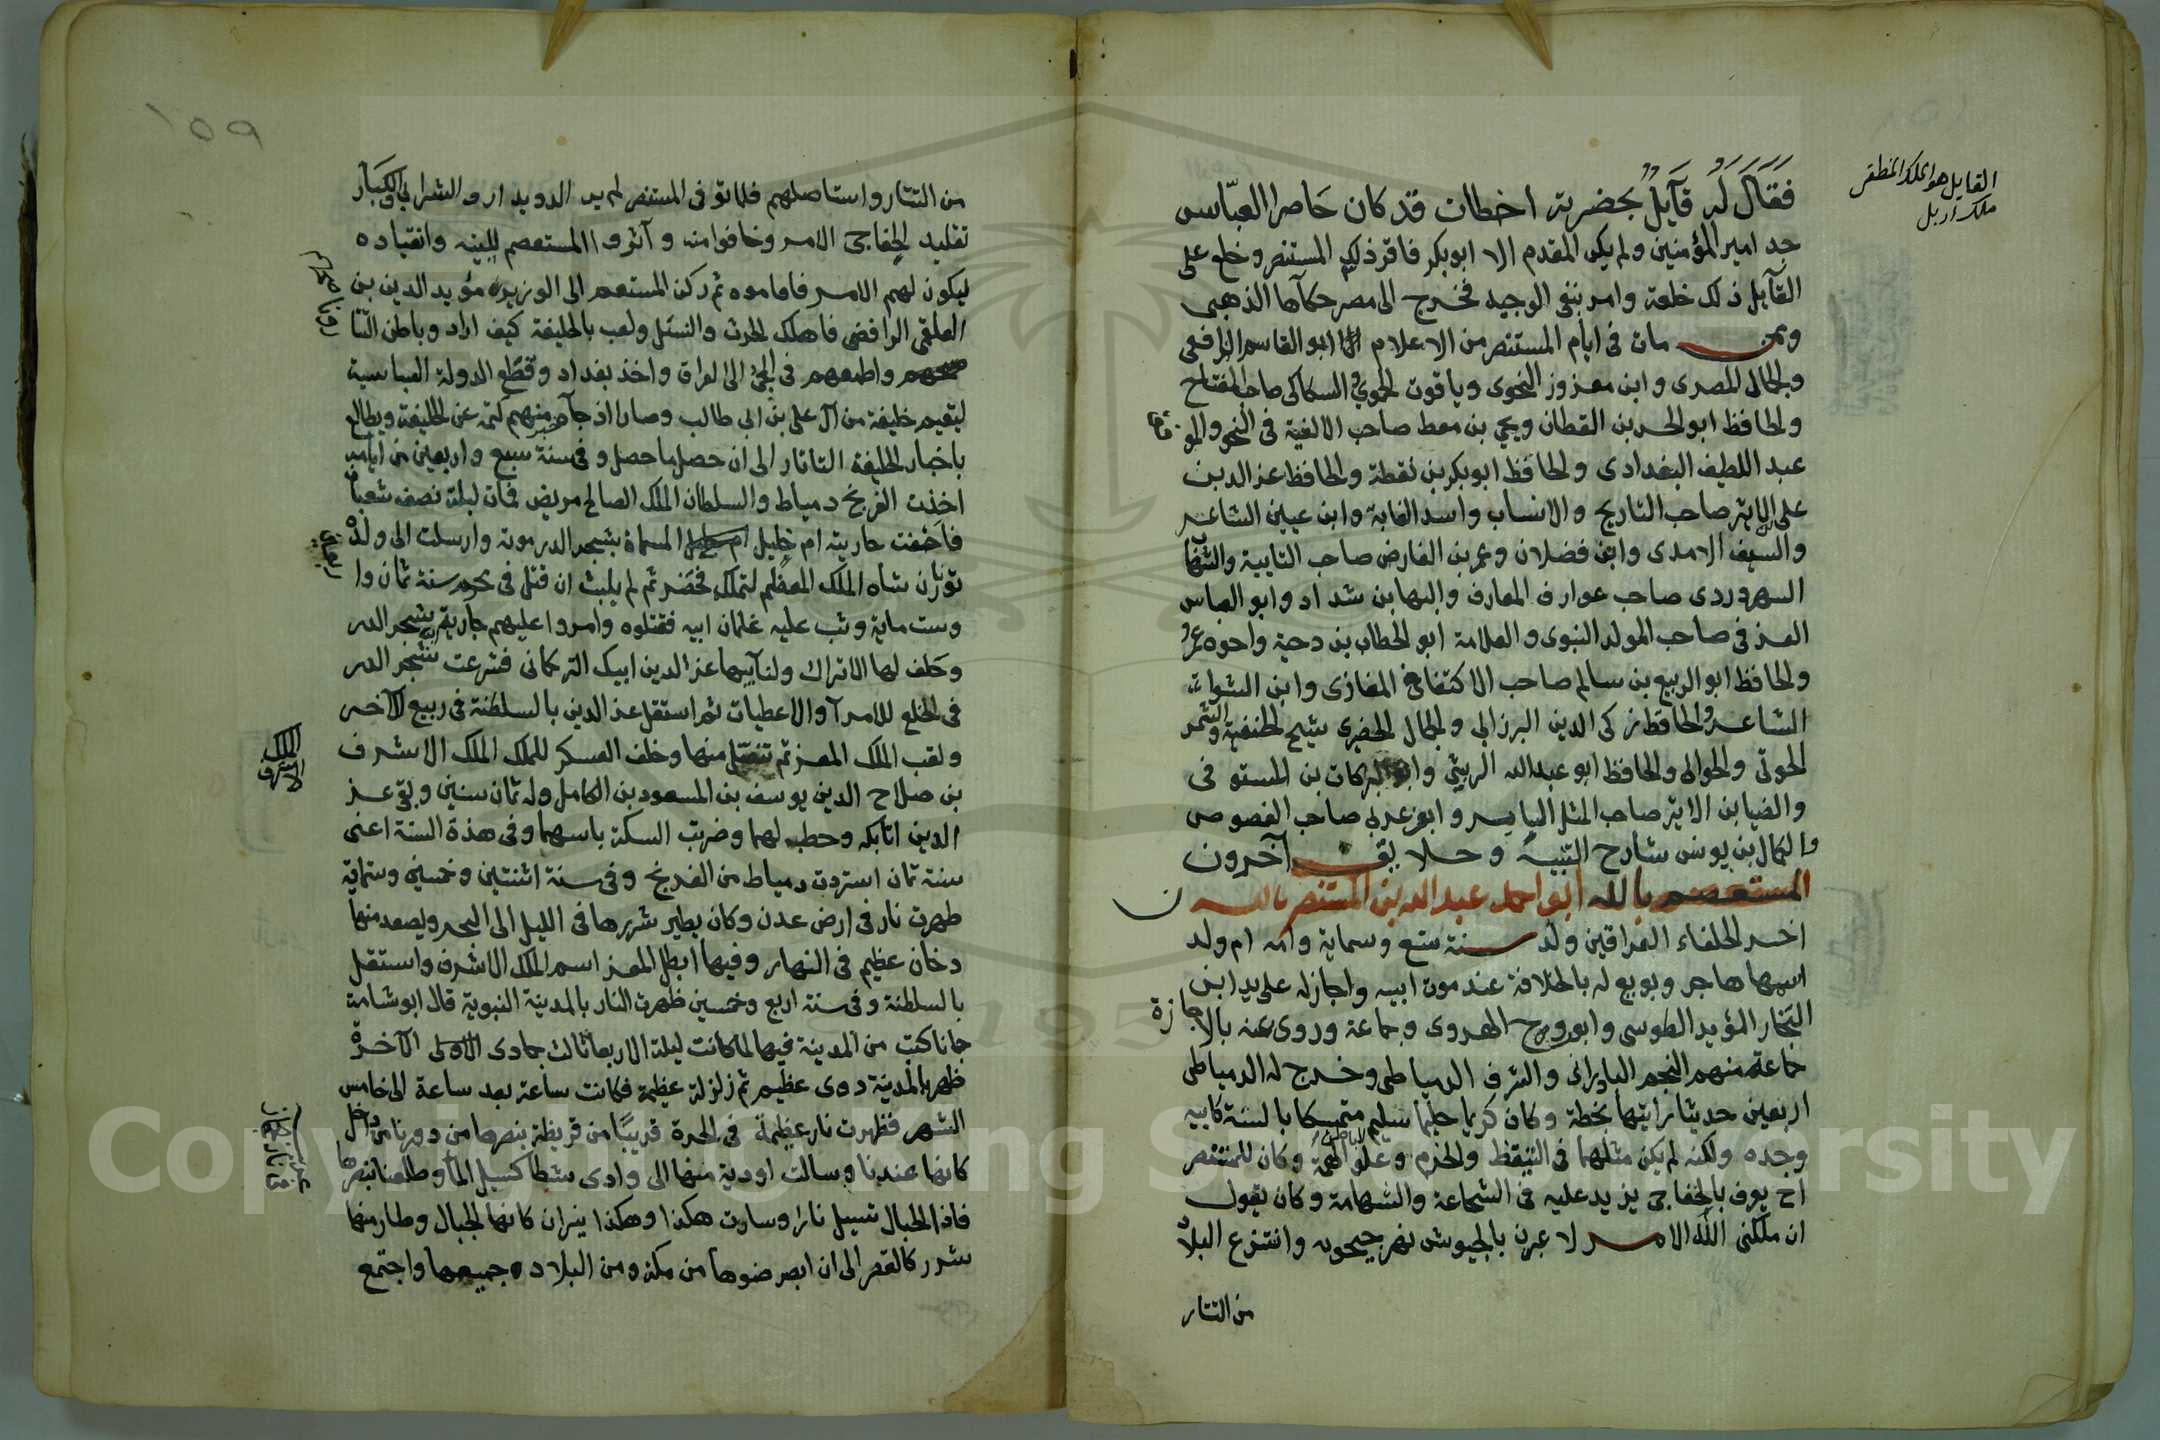 فقال له قآيل بحضرته اخطات قد كان حاصرا العبّاس
القايل هو الملك المظفر
ملك اربل
جد امير المؤمنين ولم يكن المقدم الا ابو بكر فاقر ذلك المستنصر وخلع على
القآيل ذلك خلعة وامر بنفى الوجيه فخرج الى مصر حكآها الذهبى
وممن مات فى ايام المستنصر من الاعلام ابو القاسم الرافعى
والجمال المصرى وابن معزوز النحوى وياقوت الحموى والسكاكى صاحب المفتاح
والحافظ ابو الحسن بن القطان ويحيى بن معط صاحب الالفية فى النحو والموفق
عبد اللطيف البغدادى والحافظ ابو بكر بن نقطة والحافظ عز الدين
على بن الاثير صاحب التاريخ والانساب واسد الغابة وابن عنين الشاعر
والسيف الامدى وابن فضلان وعمر بن الفارض صاحب التايية والشهاب
السهروردى صاحب عوارف المعارف والبها بن شداد وابو العباس
العزفى صاحب المولد النبوى والعلامة ابو الخطاب بن دحية واخوه عمرو
والحافظ ابو الربيع بن سالم صاحب الاكتفا فى المغازى وابن الشوا
الشاعر والحافظ زكى الدين البرزالى والجمال الحصرى شيخ الحنفية والشمس
الخوئى والحرالى والحافظ ابو عبد الله الزينى وابو البركات بن المستوفى
والضيا بن الاثير صاحب المثل الساير وابن عربى صاحب الفصوص
والكمال بن يونس شارح التنبيه وخلايق آخرون
المستعصم بالله ابو احمد عبد الله بن المستنصر بالله
اخر الخلفاء العراقين ولد سنة تسع وستماية وامه ام ولد
اسمها هاجر وبويع له بالخلافة عند موت ابيه واجاز له على يد ابن
النجار المؤيد الطوسى وابو روح الهروى وجماعة وروى عنه بالاجازة
جماعة منهم النجم البادرانى والشرف الدمياطى وخرج له الدمياطى
اربعين حديثا رايتها بخطة وكان كريما حليما سليم متمسكا بالسنة كابيه
وجده ولكنه لم يكن مثلهما فى التيقظ والحزم وعلو الهمة وكان للمستنصر
اخ يعرف بالخفاجى يزيد عليه فى الشجاعة والشهامة وكان يقول
ان ملكنى الله الامر لاعبرن بالجيوش نهر جيحون وانتزع البلاد
من التتار
١٥٩
من التتار واستاصلهم فلما توفى المستنصر لم ير الدويدار والشرابى والكبار
تقليد الخفاجى الامر وخافوا منه وآثروا المستعصم للينه وانقياده
ليكون لهم الامر فاقاموه ثم ركن المستعصم الى الوزيره مؤيد الدين بن
العلقمى الرافضى فاهلك الحرث والنسل ولعب بالخليفة كيف اراد وباطن التتا
واطمعهم فى المجئ الى العراق واخذ بغداد وقطع الدولة العباسية
ليقيم خليفة من آل على بن ابى طالب وصار اذ جآه خبر منهم كتمه عن الخليفة ويطالع
باخبار الخليفة التاتار الى ان حصل ما حصل وفى سنة سبع واربعين من ايامه
اخذت الفرنج دمياط والسلطان الملك الصالح مريض فمات ليلة نصف شعبان
فاخفت جاريته ام خليل المسماة بشجر الدر موته وارسلت الى ولده
توران شاه الملك المعظم لتملكه فحضر ثم لم يلبث ان قتل فى محرم سنة ثمان وا
ربعين
وست ماية وثب عليه غلمان ابيه فقتلوه وامروا عليهم جاريته شجر الدر
وحلف لها الاتراك ولنايبها عز الدين ايبك التركمانى فشرعت شجر الدر
فى الخلع للامرآ والاعطيات ثم استقل عز الدين بالسلطنة فى ربيع الآخر
ولقب الملك المعز ثم تنصّل منها وحلف العسكر للملك الملك الاشرف
الملك
الاشرف
بن صلاح الدين يوسف بن المسعود بن الكامل وله ثمان سنين وبقى عز
الدين اتابكه وخطب لهما وضربت السكة باسمهما وفى هذة السنة اعنى
سنة ثمان استردت دمياط من الفرنج وفى سنة اثنتين وخمسين وستماية
ظهرت نار فى ارض عدن وكان يطير شررها فى الليل الى البحر ويصعد منها
دخان عظيم فى النهار وفيها ابطل المعز اسم الملك الاشرف واستقل
بالسلطنة وفى سنة اربع وخمسين ظهرت النار بالمدينة النبوية قال ابو شامة
جاناكتب من المدينة فيها لما كانت ليلة الاربعا ثالث جمادى الآخرة
ظهر بالمدينة دوى عظيم ثم زلزلة عظيمة فكانت ساعة بعد ساعة الى خامس
الشهر فظهرت نار عظيمة فى الحرة قريبًا من قريظة نبصرها من دورنا من داخل
كانها عندنا وسالت اودية منها الى وادى شظا كسيل المآ وطلعنا نبصرها
فاذا الجبال تسيل نارا وسارت هكذا وهكذا نيران كانها الجبال وطار منها
شرر كالقصر الى ان ابصر ضوها من مكة ومن البلاد جميعها واجتمع